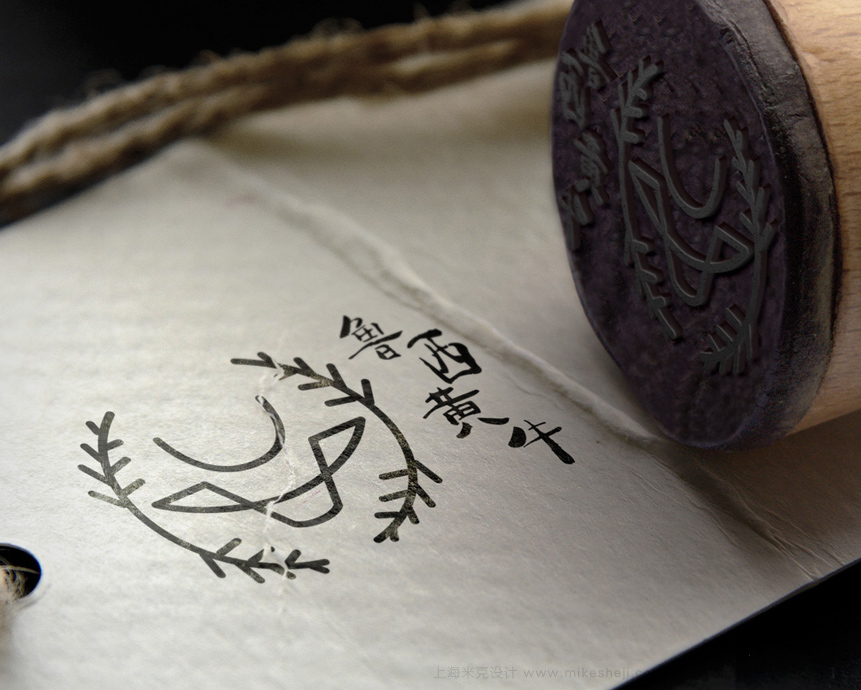 鲁西黄牛
上海米克设计 www.mikesheji.c